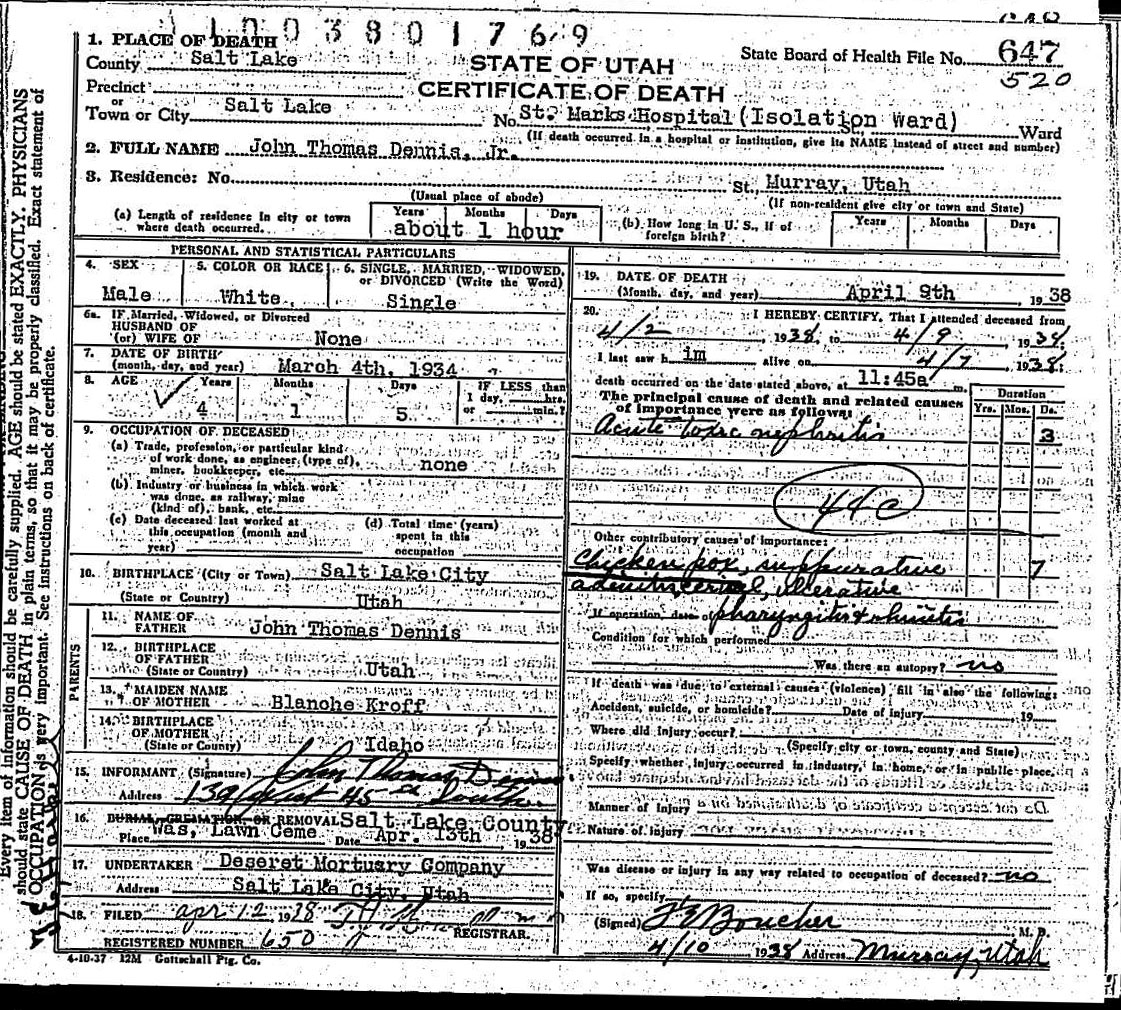 1003801769
1. PLACE OF DEATH
County Salt Lake
STATE OF UTAH
State Board of Health File No. 647
520
Precinct
or
Town or City Salt Lake
CERTIFICATE OF DEATH
No. St. Marks Hospital (Isolation Ward) St., Ward
(If death occurred in a hospital or institution, give its NAME instead of street and number)
2. FULL NAME John Thomas Dennis, Jr.
3. Residence: No. St., Murray, Utah
(Usual place of abode)
(If non-resident give city or town and State)
(a) Length of residence in city or town where death occurred. Years Months Days
about 1 hour
(b) How long in U. S., if of foreign birth? Years Months Days
PERSONAL AND STATISTICAL PARTICULARS
4. SEX
Male
5. COLOR OR RACE
White
6. SINGLE, MARRIED, WIDOWED, or DIVORCED (Write the Word)
Single
6a. IF Married, Widowed, or Divorced
HUSBAND OF
(or) WIFE OF None
7. DATE OF BIRTH
(month, day, and year) March 4th, 1934
8. AGE Years Months Days
4 1 5
IF LESS than
1 day, hrs.
or min.?
9. OCCUPATION OF DECEASED
(a) Trade, profession, or particular kind
of work done, as engineer (type of),
miner, bookkeeper, etc. none
(b) Industry or business in which work
was done, as railway, mine
(kind of), bank, etc.
(c) Date deceased last worked at
this occupation (month and
year)
(d) Total time (years)
spent in this
occupation
10. BIRTHPLACE (City or Town) Salt Lake City
(State or Country) Utah
PARENTS
11. NAME OF
FATHER John Thomas Dennis
12. BIRTHPLACE
OF FATHER
(State or Country) Utah
13. MAIDEN NAME
OF MOTHER Blanche Kroff
14. BIRTHPLACE
OF MOTHER
(State or County) Idaho
15. INFORMANT (Signature) John Thomas Dennis
Address 139 West 45th South
16. BURIAL, CREMATION, OR REMOVAL Salt Lake County
Place Was, Lawn Ceme Date Apr. 13th 1938
17. UNDERTAKER Deseret Mortuary Company
Address Salt Lake City, Utah
18. FILED apr 12, 1938
REGISTRAR.
REGISTERED NUMBER 650
4-10-37 12M Gottschall Ptg. Co.
19. DATE OF DEATH
(Month, day, and year) April 9th, 1938
20. I HEREBY CERTIFY, That I attended deceased from
4/2, 1938, to 4/9, 1938.
I last saw him alive on 4/7, 1938;
death occurred on the date stated above, at 11:45a m.
The principal cause of death and related causes
of importance were as follows:
Duration
Yrs. Mos. Ds.
Acute toxic nephritis 3
44c
Other contributory causes of importance:
Chicken pox, suppurative 7
cervical, ulcerative
If operation, date of pharyngitis & rhinitis
Condition for which performed
Was there an autopsy? no
If death was due to external causes (violence) fill in also the following:
Accident, suicide, or homicide? Date of injury 19
Where did injury occur?
(Specify city or town, county and State)
Specify whether injury occurred in industry, in home, or in public place,
Manner of injury
Nature of injury
Was disease or injury in any way related to occupation of deceased? no
If so, specify
(Signed) F E Boucher M. D.
4/10 1938 Address Murray, Utah
Every item of information should be carefully supplied. AGE should be stated EXACTLY. PHYSICIANS
should state CAUSE OF DEATH in plain terms, so that it may be properly classified. Exact statement of
OCCUPATION is very important. See instructions on back of certificate.